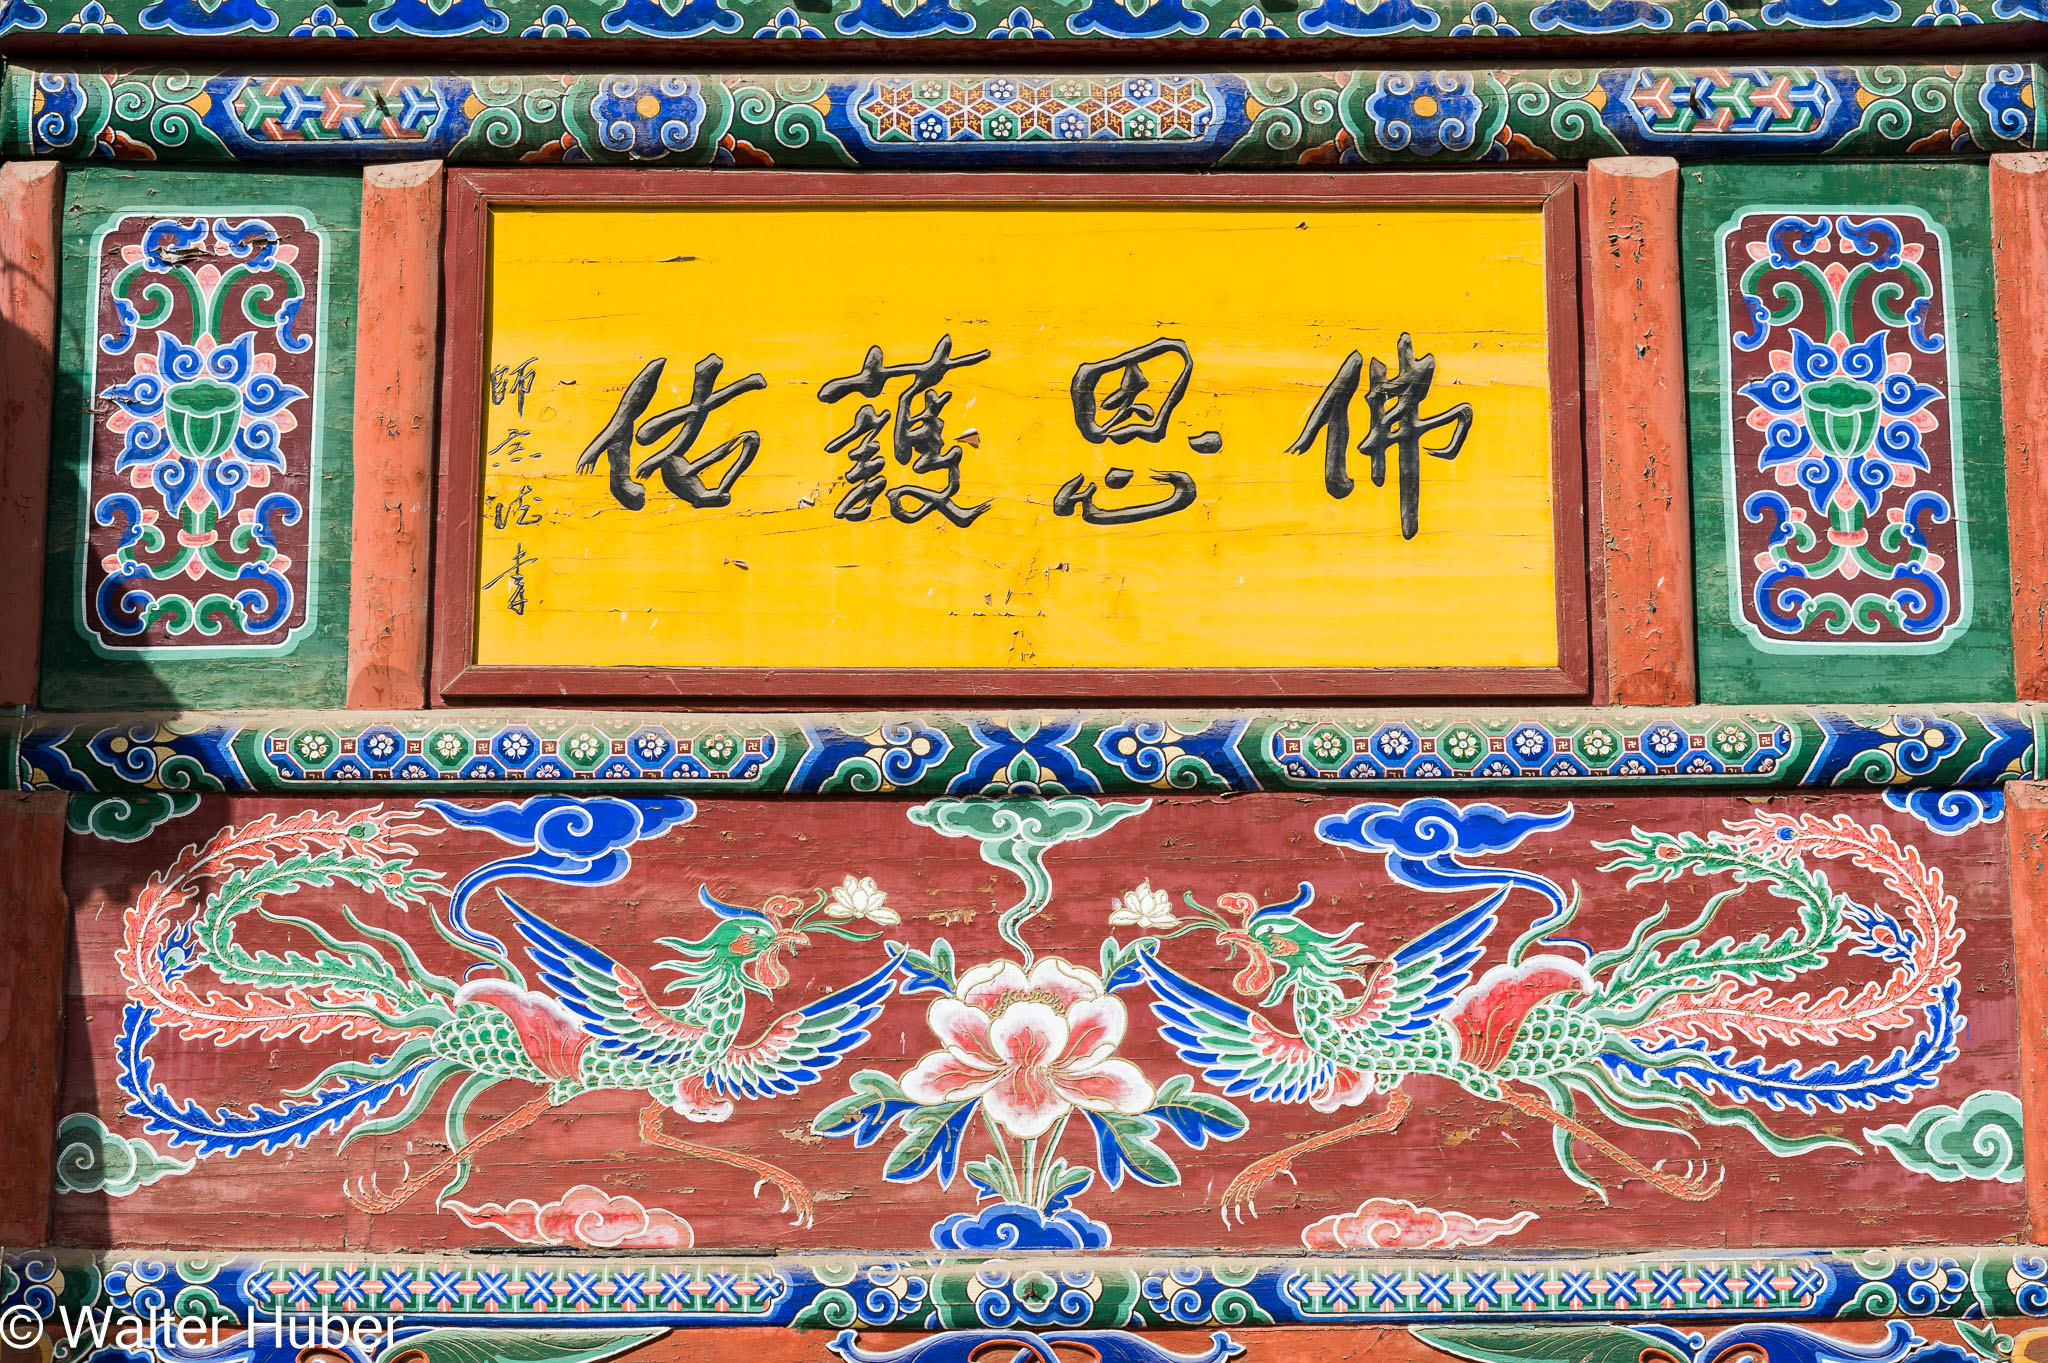 佛恩護佑
師 書
© Walter Huber